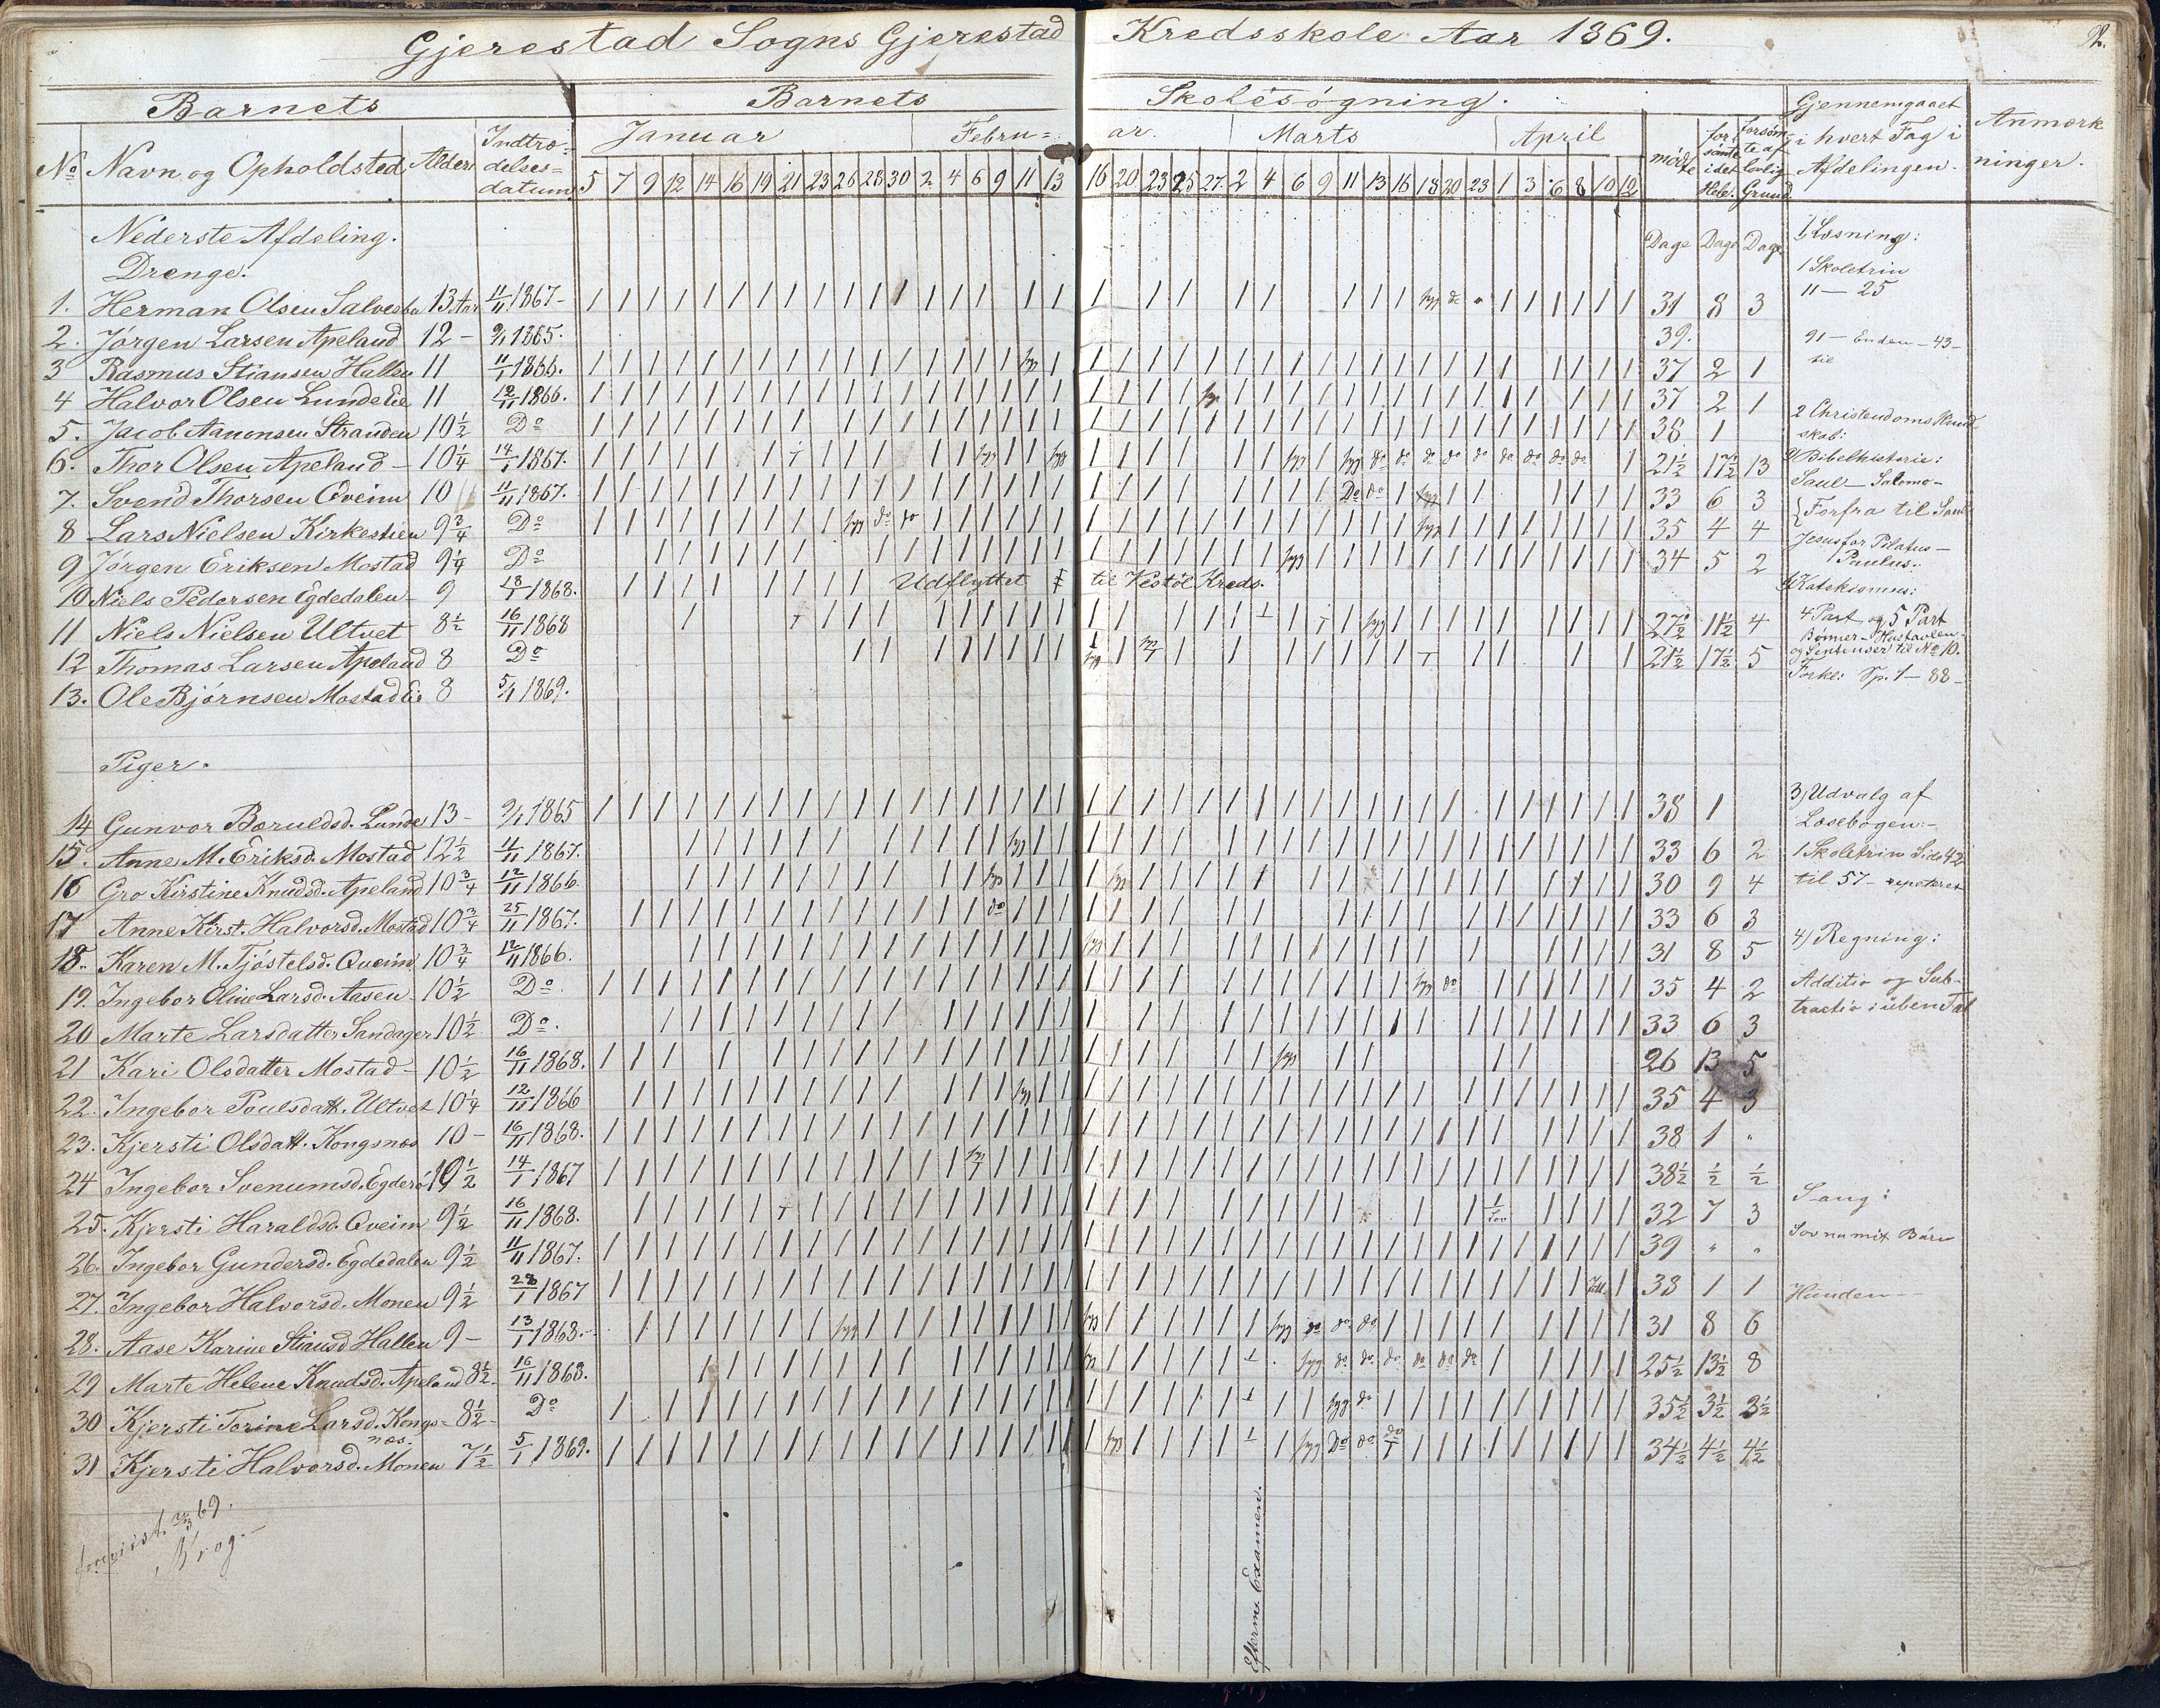 Gjerestad Sogns Gjerestad Kredsskole Aar 1869.
Barnets Barnets Skolesøgning. Gjennemgaaet i hvert Fag i Afdelingen. Anmærkninger.
No Navn og Opholdsted Alder Indtrædelses=datum Januar Februar. Marts April mødte forsømte i det Hele. forsømte af lovlig Grund.
5 7 9 12 14 16 19 21 23 26 28 30 2 4 6 9 11 13 16 20 23 25 27 2 4 6 9 11 13 16 18 20 23 1 3 6 8 10 12
Nederste Afdeling. Dage Dage Dage
Drenge.
1. Herman Olsen 13 Aar 11/11 1867 - 31 8 3
2. Jørgen Larsen Apeland 12 - 9/1 1865. 39.
3 Rasmus Stiansen Hallen 11 11/1 1866. 37 2 1
4 Halvor Olsen Lunde Eie 11 12/11 1866. 37 2 1
5. Jacob Aanonsen Stranden 10 1/2 Do 38 1
6. Thor Olsen Apeland - 10 1/4 14/1 1867. 21 1/2 17 1/2 13
7. Svend Thorsen Qveim 10 11/11 1867. 33 6 3
8 Lars Nielsen Kirkestien 9 3/4 Do 35 4 4
9 Jørgen Eriksen Mostad 9 1/4 Do 34 5 2
10 Niels Pedersen Egdedalen 9 13/1 1868. Udflyttet til Vestøl Kreds.
11 Niels Nielsen Ultvet 8 1/2 16/11 1868 27 1/2 11 1/2 4
12 Thomas Larsen Apeland 8 Do 21 1/2 17 1/2 5
13. Ole Bjørnsen Mostad Eie 8 5/1 1869.
Piger.
14 Gunvor Baruldsd. Lunde 13 - 9/1 1865 38 1
15. Anne M. Eriksd. Mostad 12 1/2 11/11 1867. 33 6 2
16 Gro Kirstine Knudsd. Apeland 10 3/4 12/11 1866. 30 9 4
17 Anne Kirst. Halvorsd. Mostad 10 3/4 25/11 1867. 33 6 3
18. Karen M. Tjøstelsd. Qveim 10 3/4 12/11 1866. 31 8 5
19. Ingebor Oline Larsd. Aasen 10 1/2 Do. 35 4 2
20 Marte Larsdatter Sandager 10 1/2 Do. 33 6 3
21 Kari Olsdatter Mostad - 10 1/2 16/11 1868. 26 13 5
22. Ingebor Poulsdatt. Ultvet 10 1/4 12/11 1866 35 4 3
23. Kjersti Olsdatt. Kongsnæs 10 - 16/11 1868. 38 1 "
24 Ingebor Svenumsd. 10 1/2 14/1 1867 38 1/2 1/2 1/2
25. Kjersti Haraldsd. Qveim 9 1/2 16/11 1868. 32 7 3
26. Ingebor Gundersd. Egdedalen 9 1/2 11/11 1867. 39 " "
27. Ingebor Halvorsd. Monen 9 1/2 28/1 1867 38 1 1
28. Aase Karine Stiansd Hallen 9 - 13/1 1868. 31 8 6
29 Marte Helene Knudsd. Apeland 8 1/2 16/11 1868. 25 1/2 13 1/2 8
30 Kjersti Torine Larsd. Kongs=næs. 8 1/2 Do 35 1/2 3 1/2 3 1/2
31 Kjersti Halvorsd. Monen 7 1/2 5/1 1869. 34 1/2 4 1/2 4 1/2
69.
Krog.
Efterm. Examen.
1, Læsning:
1 Skoletrin
11 - 25
91 - Enden - 43 -
til
2 Christendoms Kundskab:
Bibelhistorie:
Saul - Salomo -
Forfra til Saul
Jesus for Pilatus -
Paulus.
Katekismus:
4 Part og 5 Part
Bønner - Hustavlen -
og Sentenser til No 10.
Forkl: Sp. 1 - 88 -
3, Udvalg af
Læsebogen: -
1 Skoletrin Side 42
til 57 - repeteret
4) Regning:
Additio og Sub-
tractio i uben Tal
Sang:
Sov nu mit Barn
Hunden -